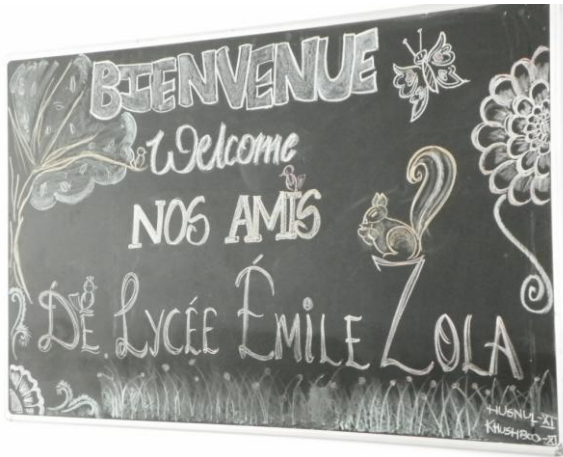 BIENVENUE
Welcome
NOS AMIS
DE LYCÉE ÉMILE ZOLA
HUSNUL-XI
KHUSHBOO-XI